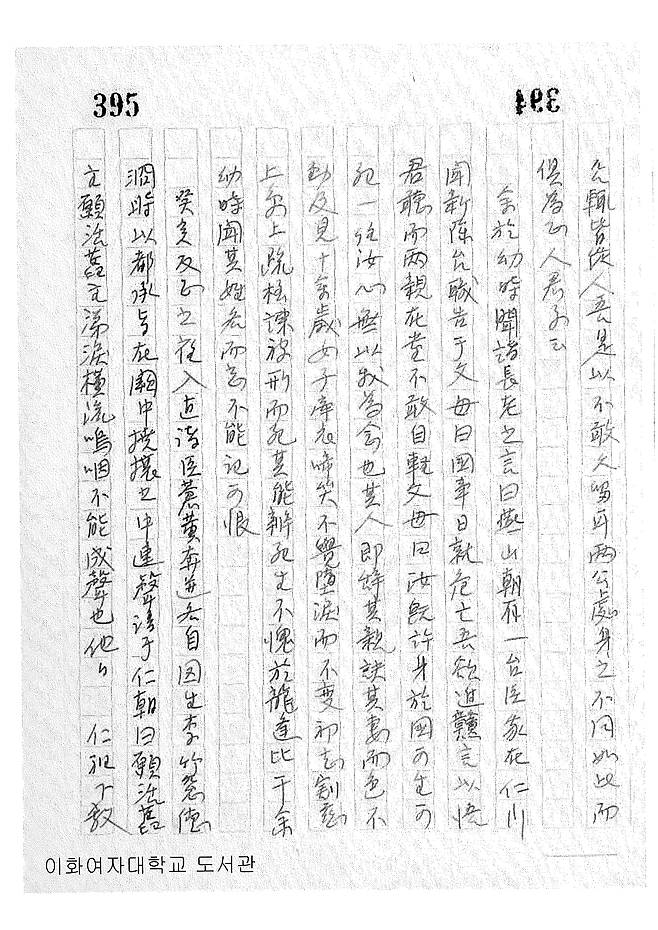 394
395
兄輒皆從人吾是以不敢久留耳兩公處身之不同如此而
俱爲正人君子云
余於幼時聞諸長老之言曰燕山朝有一台臣家在仁川
聞新除台職告于父母曰國事日就危亡吾欲進讜言以悟
君聽而兩親在堂不敢自輕父母曰汝旣許身於國可生可
死一任汝心無以我爲念也其人卽辭其親訣其妻而色不
動及見十余歲女子牽衣啼笑不覺墮淚而不變初志割恋
上京上疏極諫被刑而死其能辦死生不愧於龍逢比干余
幼時聞其姓名而忘不能記可恨
癸亥反正之夜入直諸臣蒼黃奔並各自圖生李竹窓德
泂時以都承旨在闕中擾攘之中連聲請于仁朝曰願活舊
主願活舊主涕淚橫流嗚咽不能成聲也他日 仁祖下敎
이화여자대학교 도서관